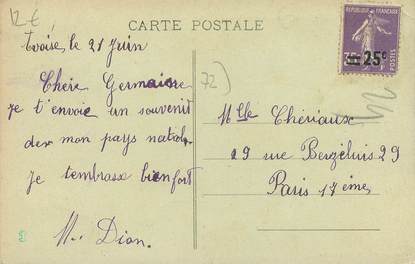 12 €
CARTE POSTALE
REPUBLIQUE FRANÇAISE
POSTES
25c
Evoisé, le 21 Juin
72)
Chère Germaine
je t'envoie un souvenir
der mon pays natal.
je tembrasse bien fort
M. Dion.
Mlle Chériaux
29 rue Berzéluis 29
Paris 17 ème